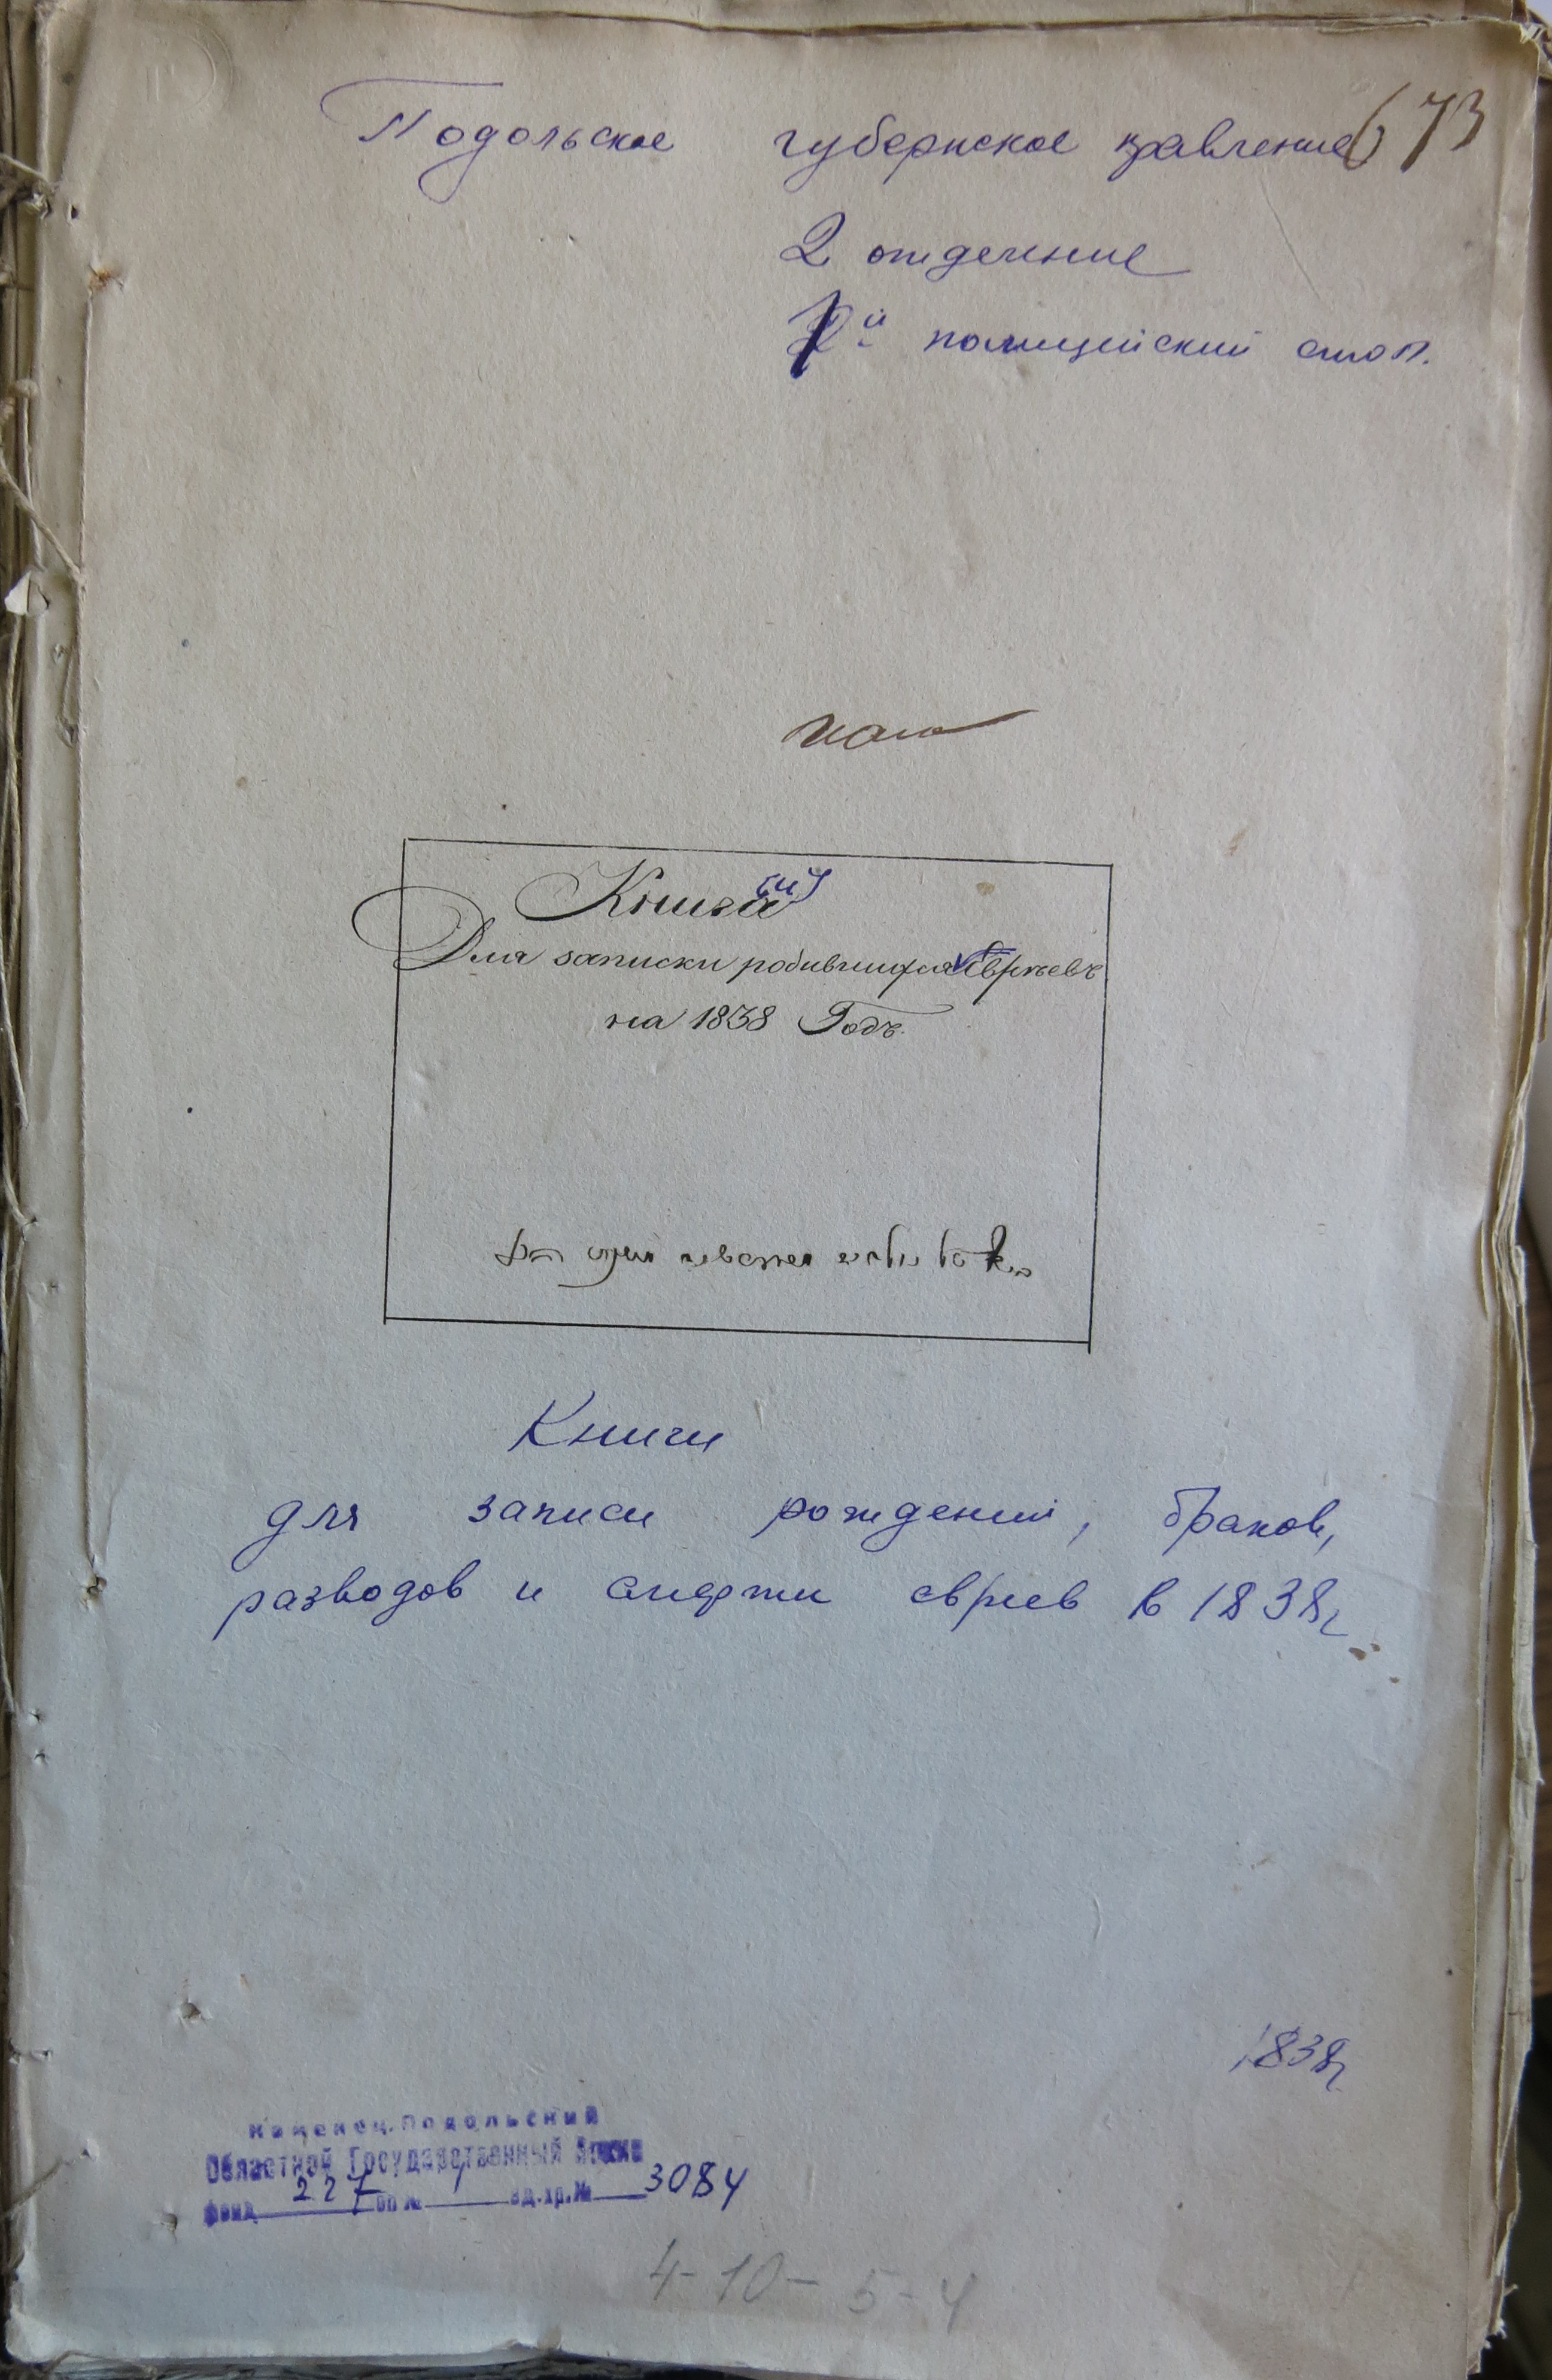 Подольское губернское правление 673
2 отделение
й полицейский стол.
Книга (и)
Для записки родившихся Евреевъ
на 1838 Годъ.
Книги
для записи рождений, браков,
разводов и смерти евреев в 1838г
1838г
Каменец-Подольский
Областной Государственный Архив
фонд 227 оп № 1 ед.хр.№ 3084
4-10-5-4